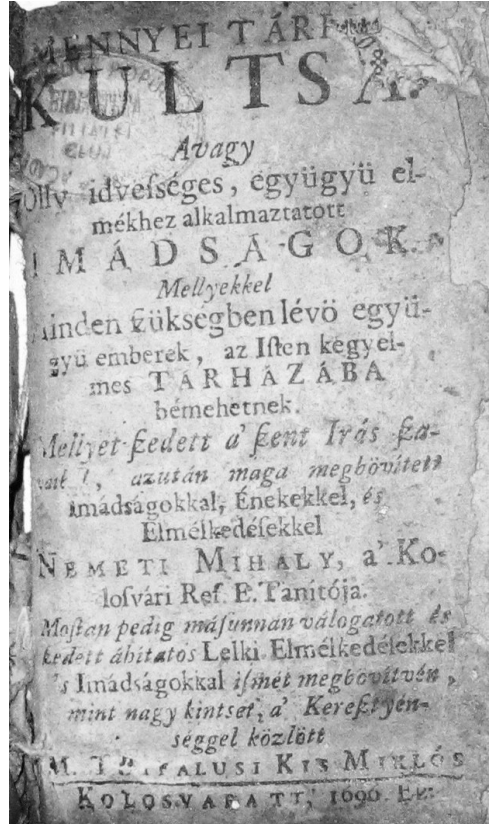 MENNYEI TÁRH
KULTSA.
Avagy
Olly idvességes, együgyü el-
mékhez alkalmaztatott
IMÁDSÁGOK.
Mellyekkel
minden ßükségben lévö együ-
gyü emberek, az Isten kegyel-
mes TÁRHÁZÁBA
bémehetnek.
Mellyet ßedett a' ßent Irás ßa-
azután maga megbövitett
imádságokkal, Énekekkel, és
Elmélkedésekkel
NEMETI MIHALY, a' Ko-
losvári Ref. E. Tanítója.
Mostan pedig másunnan válogatott és
ßedett áhitatos Lelki Elmélkedésekkel
's Imádságokkal ismét megbövitvén,
mint nagy kintset, a' Kereßtyén-
séggel közlött
M. TOTFALUSI KIS MIKLÓS
KOLOSVARATT, 1696. Eß: